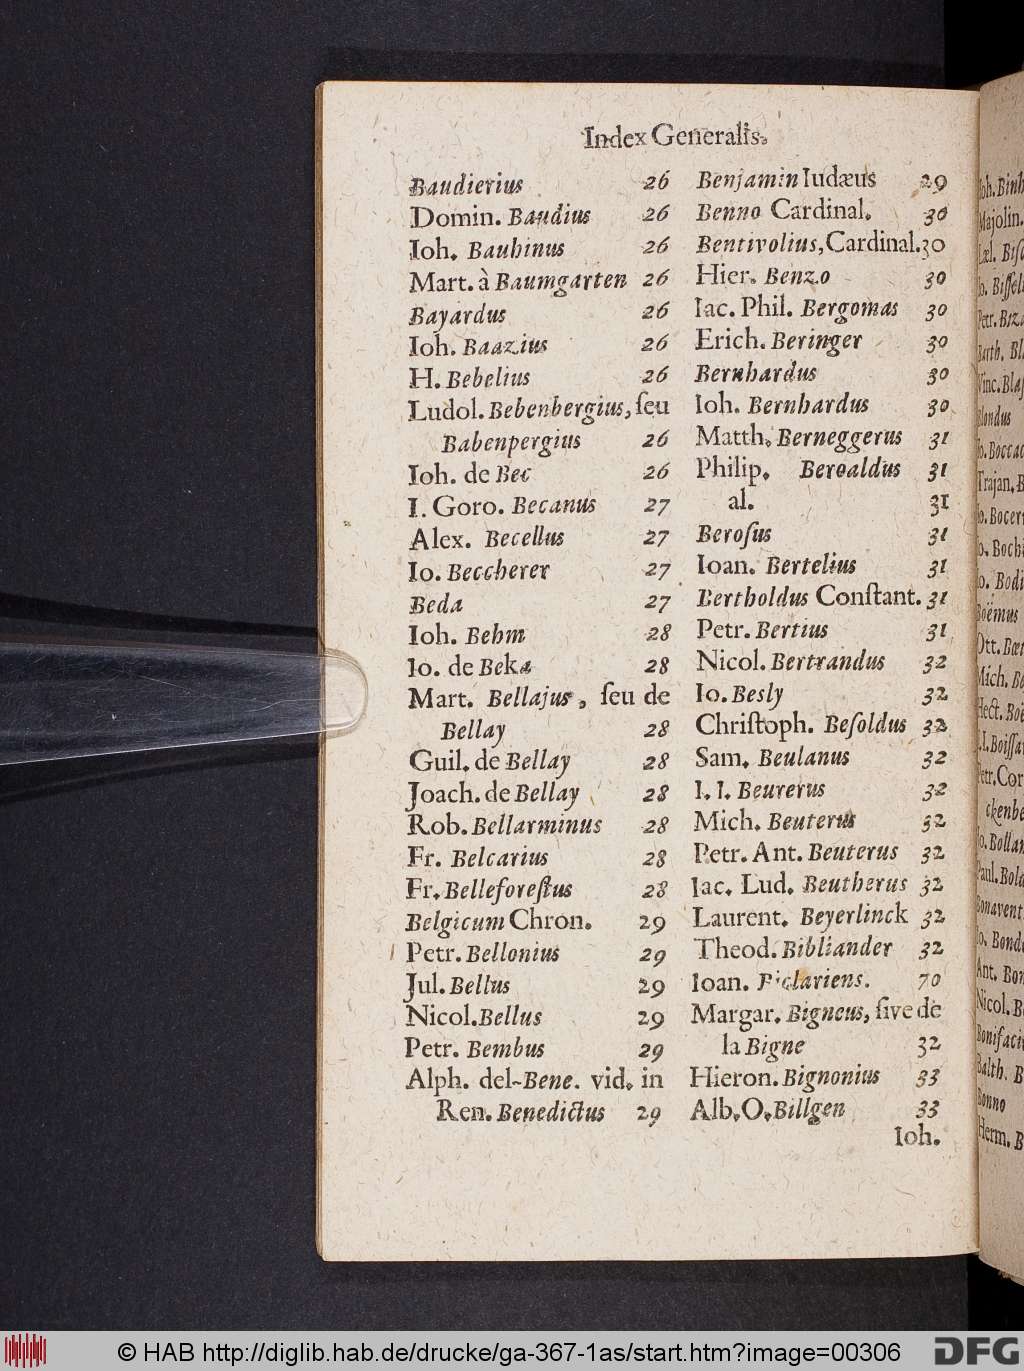 Index Generalis.
Baudierius 26
Domin. Baudius 26
Ioh. Bauhinus 26
Mart. à Baumgarten 26
Bayardus 26
Ioh. Baazius 26
H. Bebelius 26
Ludol. Bebenbergius, ſeu
Babenpergius 26
Ioh. de Bec 26
I. Goro. Becanus 27
Alex. Becellus 27
Io. Beccherer 27
Beda 27
Ioh. Behm 28
Io. de Beka 28
Mart. Bellajus, ſeu de
Bellay 28
Guil. de Bellay 28
Joach. de Bellay 28
Rob. Bellarminus 28
Fr. Belcarius 28
Fr. Belleforeſtus 28
Belgicum Chron. 29
Petr. Bellonius 29
Jul. Bellus 29
Nicol. Bellus 29
Petr. Bembus 29
Alph. del-Bene. vid. in
Ren. Benedictus 29
Benjamin Iudæus 29
Benno Cardinal. 30
Bentivolius, Cardinal. 30
Hier. Benzo 30
Iac. Phil. Bergomas 30
Erich. Beringer 30
Bernhardus 30
Ioh. Bernhardus 30
Matth. Berneggerus 31
Philip. Beroaldus 31
al. 31
Beroſus 31
Ioan. Bertelius 31
Bertholdus Conſtant. 31
Petr. Bertius 31
Nicol. Bertrandus 32
Io. Besly 32
Chriſtoph. Beſoldus 32
Sam. Beulanus 32
I. I. Beurerus 32
Mich. Beuterus 32
Petr. Ant. Beuterus 32
Iac. Lud. Beutherus 32
Laurent. Beyerlinck 32
Theod. Bibliander 32
Ioan. Biclariens. 70
Margar. Bigneus, ſive de
la Bigne 32
Hieron. Bignonius 33
Alb. O. Billgen 33
Ioh.
© HAB http://diglib.hab.de/drucke/ga-367-1as/start.htm?image=00306
DFG